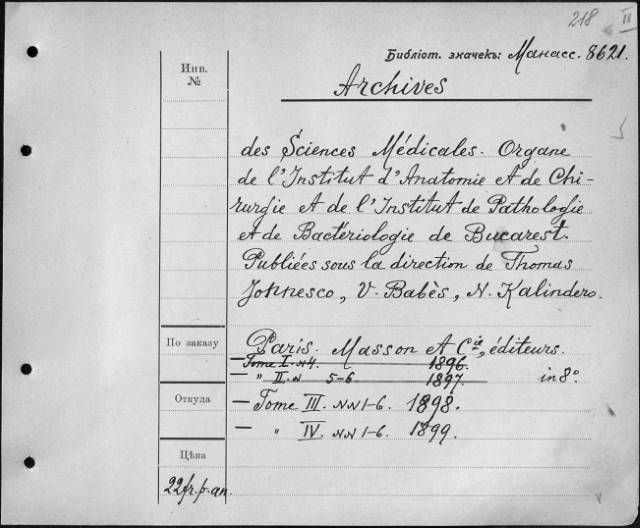 218 II
Библіот. значекъ: Манасс. 8621.
Инв.
№
Archives
des Sciences Médicales. Organe
de l'Institut d'Anatomie et de Chi-
rurgie et de l'Institut de Pathologie
et de Bactériologie de Bucarest.
Publiées sous la direction de Thomas
Jonnesco, V. Babès, N. Kalindero.
По заказу
Paris. Masson et Cie, éditeurs.
— Tome I. N4. 1896.
— " II. N 5-6 1897. in 8°
Откуда
— Tome III. NN 1-6. 1898.
— " IV. NN 1-6. 1899.
Цѣна
22 fr. p. an.